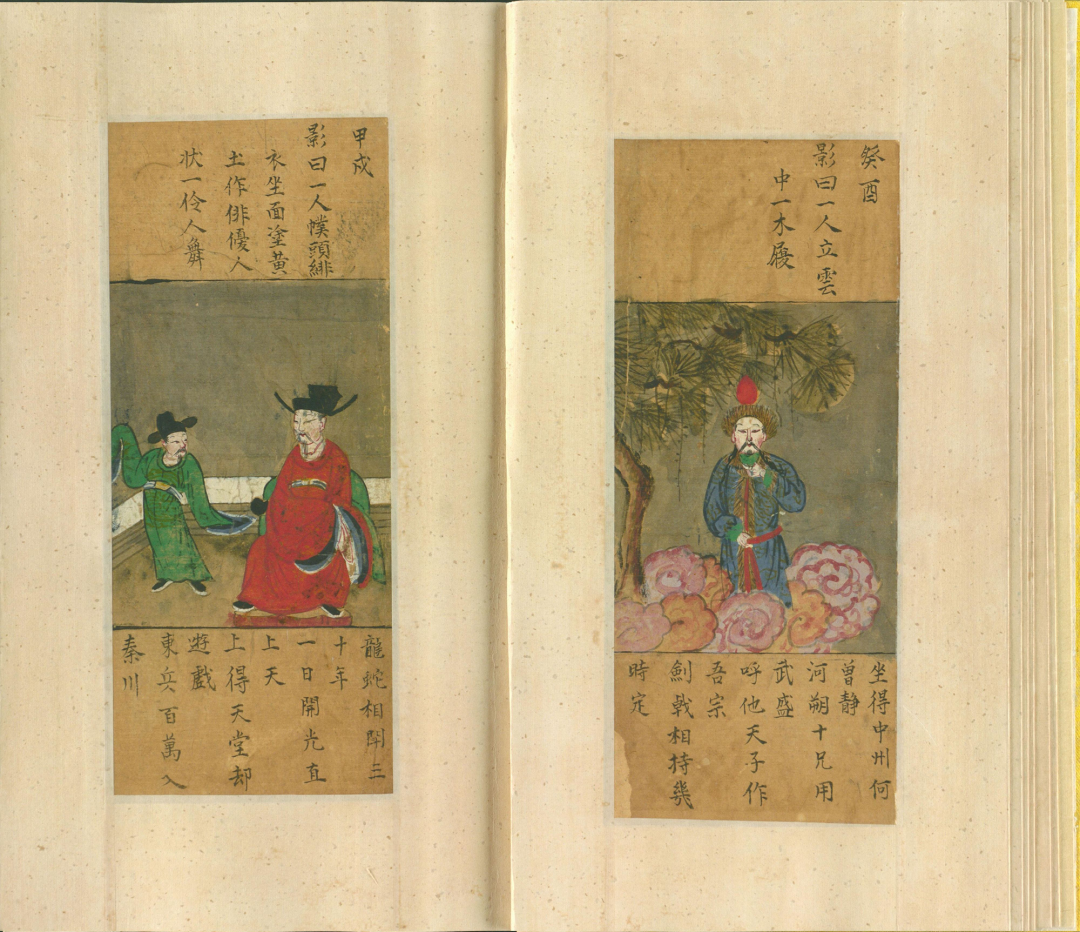 癸酉
影曰一人立雲
中一木屐
坐得中州何
曾静
河朔十兄用
武盛
呼他天子作
吾宗
劍戟相持幾
時定
甲戍
影曰一人幞頭緋
衣坐面塗黄
土作俳優人
狀一伶人舞
龍蛇相鬦三
十年
一日開光直
上天
上得天堂却
遊戲
東兵百萬入
秦川